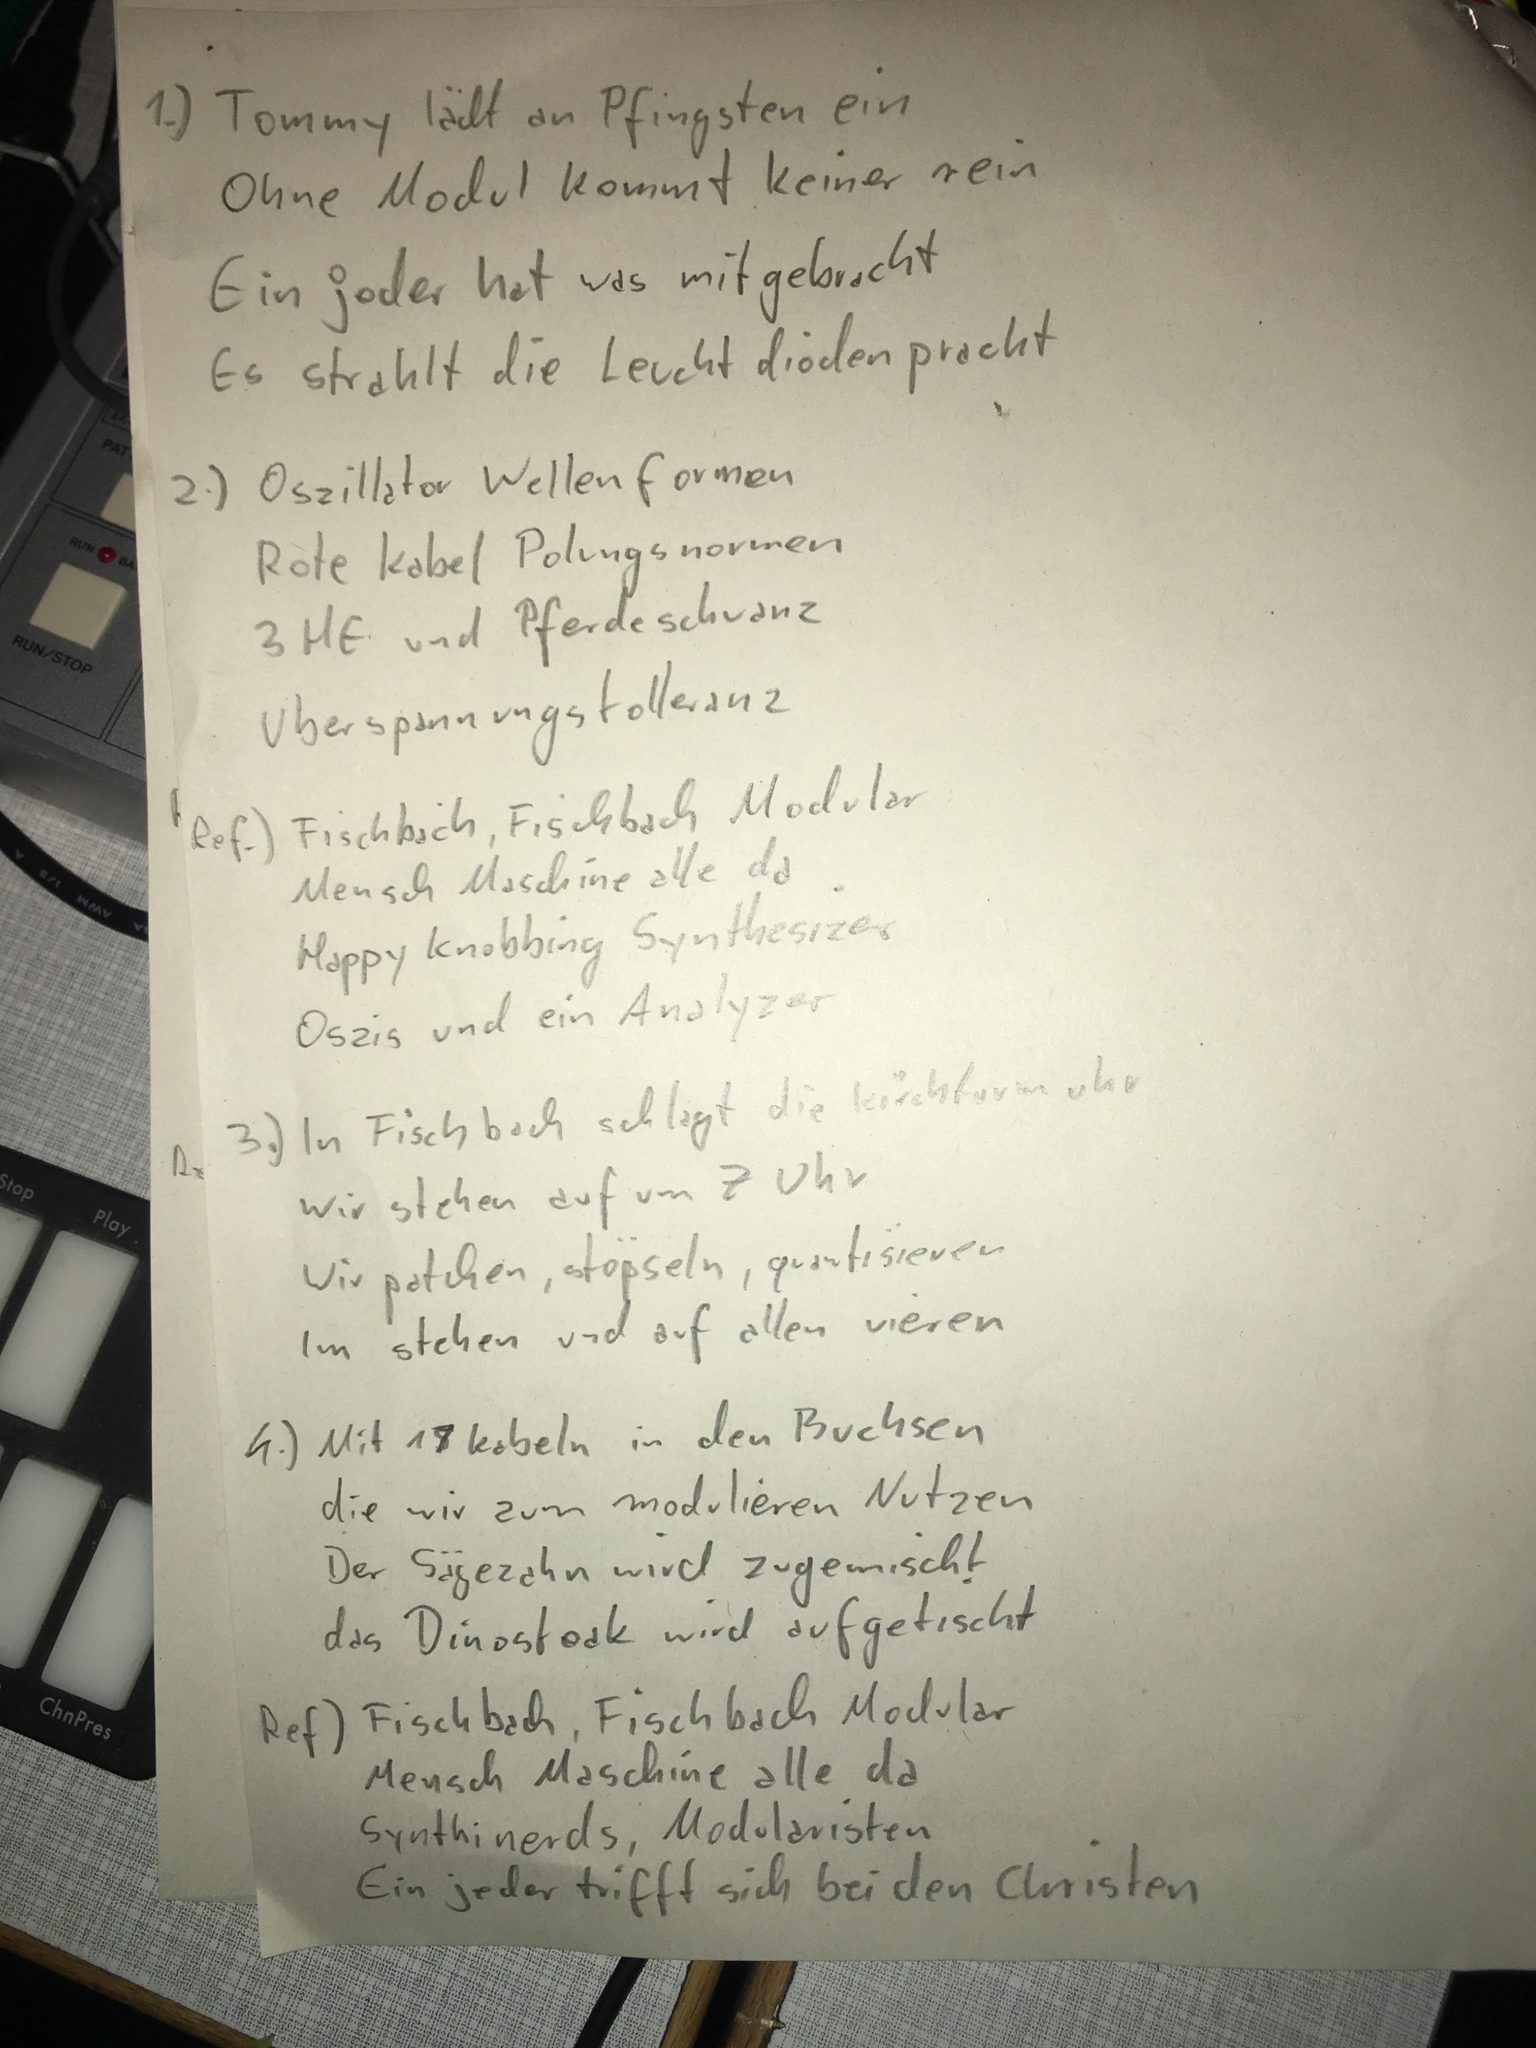 1.) Tommy lädt an Pfingsten ein
Ohne Modul kommt keiner rein
Ein jeder hat was mitgebracht
Es strahlt die Leuchtdiodenpracht
2.) Oszillator Wellenformen
Rote Kabel Polungsnormen
3 HE und Pferdeschwanz
Uberspannungstolleranz
Ref.) Fischbach, Fischbach Modular
Mensch Maschine alle da
Happy Knobbing Synthesizer
Oszis und ein Analyzer
3.) In Fischbach schlagt die kirchturm uhr
Wir stehen auf um 7 Uhr
Wir patchen, stöpseln, quantisieren
Im stehen und auf allen vieren
4.) Mit 18 kabeln in den Buchsen
die wir zum modulieren Nutzen
Der Sägezahn wird zugemischt
das Dinosteak wird aufgetischt
Ref) Fischbach, Fischbach Modular
Mensch Maschine alle da
Synthinerds, Modularisten
Ein jeder trifft sich bei den Christen
RUN
RUN/STOP
AWM
Stop
Play
ChnPres